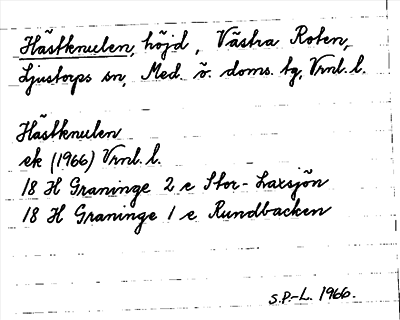 Hästknulen, höjd, Västra Roten,
Ljustorps sn, Med. ö. doms. tg, Vrnl. l.
Hästknulen
ek (1966) Vrnl. l.
18 H Graninge 2 e Stor-Laxsjön
18 H Graninge 1 e Rundbacken
S.P.-L. 1966.